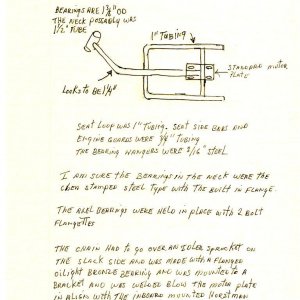 BEARINGS ARE 1 3/8" OD
THE NECK POSSABLY WAS
1 1/2" TUBE
1" TUBING
STANDARD MOTOR
PLATE
LOOKS TO BE 1 1/4"
SEAT LOOP WAS 1" TUBING. SEAT SIDE BARS AND
ENGINE GUARDS WERE 3/4" TUBING
THE BEARING HANGERS WERE 3/16" STEEL
I AM SURE THE BEARINGS IN THE NECK WERE THE
OPEN STAMPED STEEL TYPE WITH THE BUILT IN FLANGE.
THE AXEL BEARINGS WERE HELD IN PLACE WITH 2 BOLT
FLANGETTES
THE CHAIN HAD TO GO OVER AN IDLER SPROCKET ON
THE SLACK SIDE AND WAS MADE WITH A FLANGED
OILIGHT BRONZE BEARING AND WAS MOUNTED TO A
BRACKET AND WAS WELDED BLOW THE MOTOR PLATE
IN ALIGN WITH THE INBOARD MOUNTED HORSTMAN